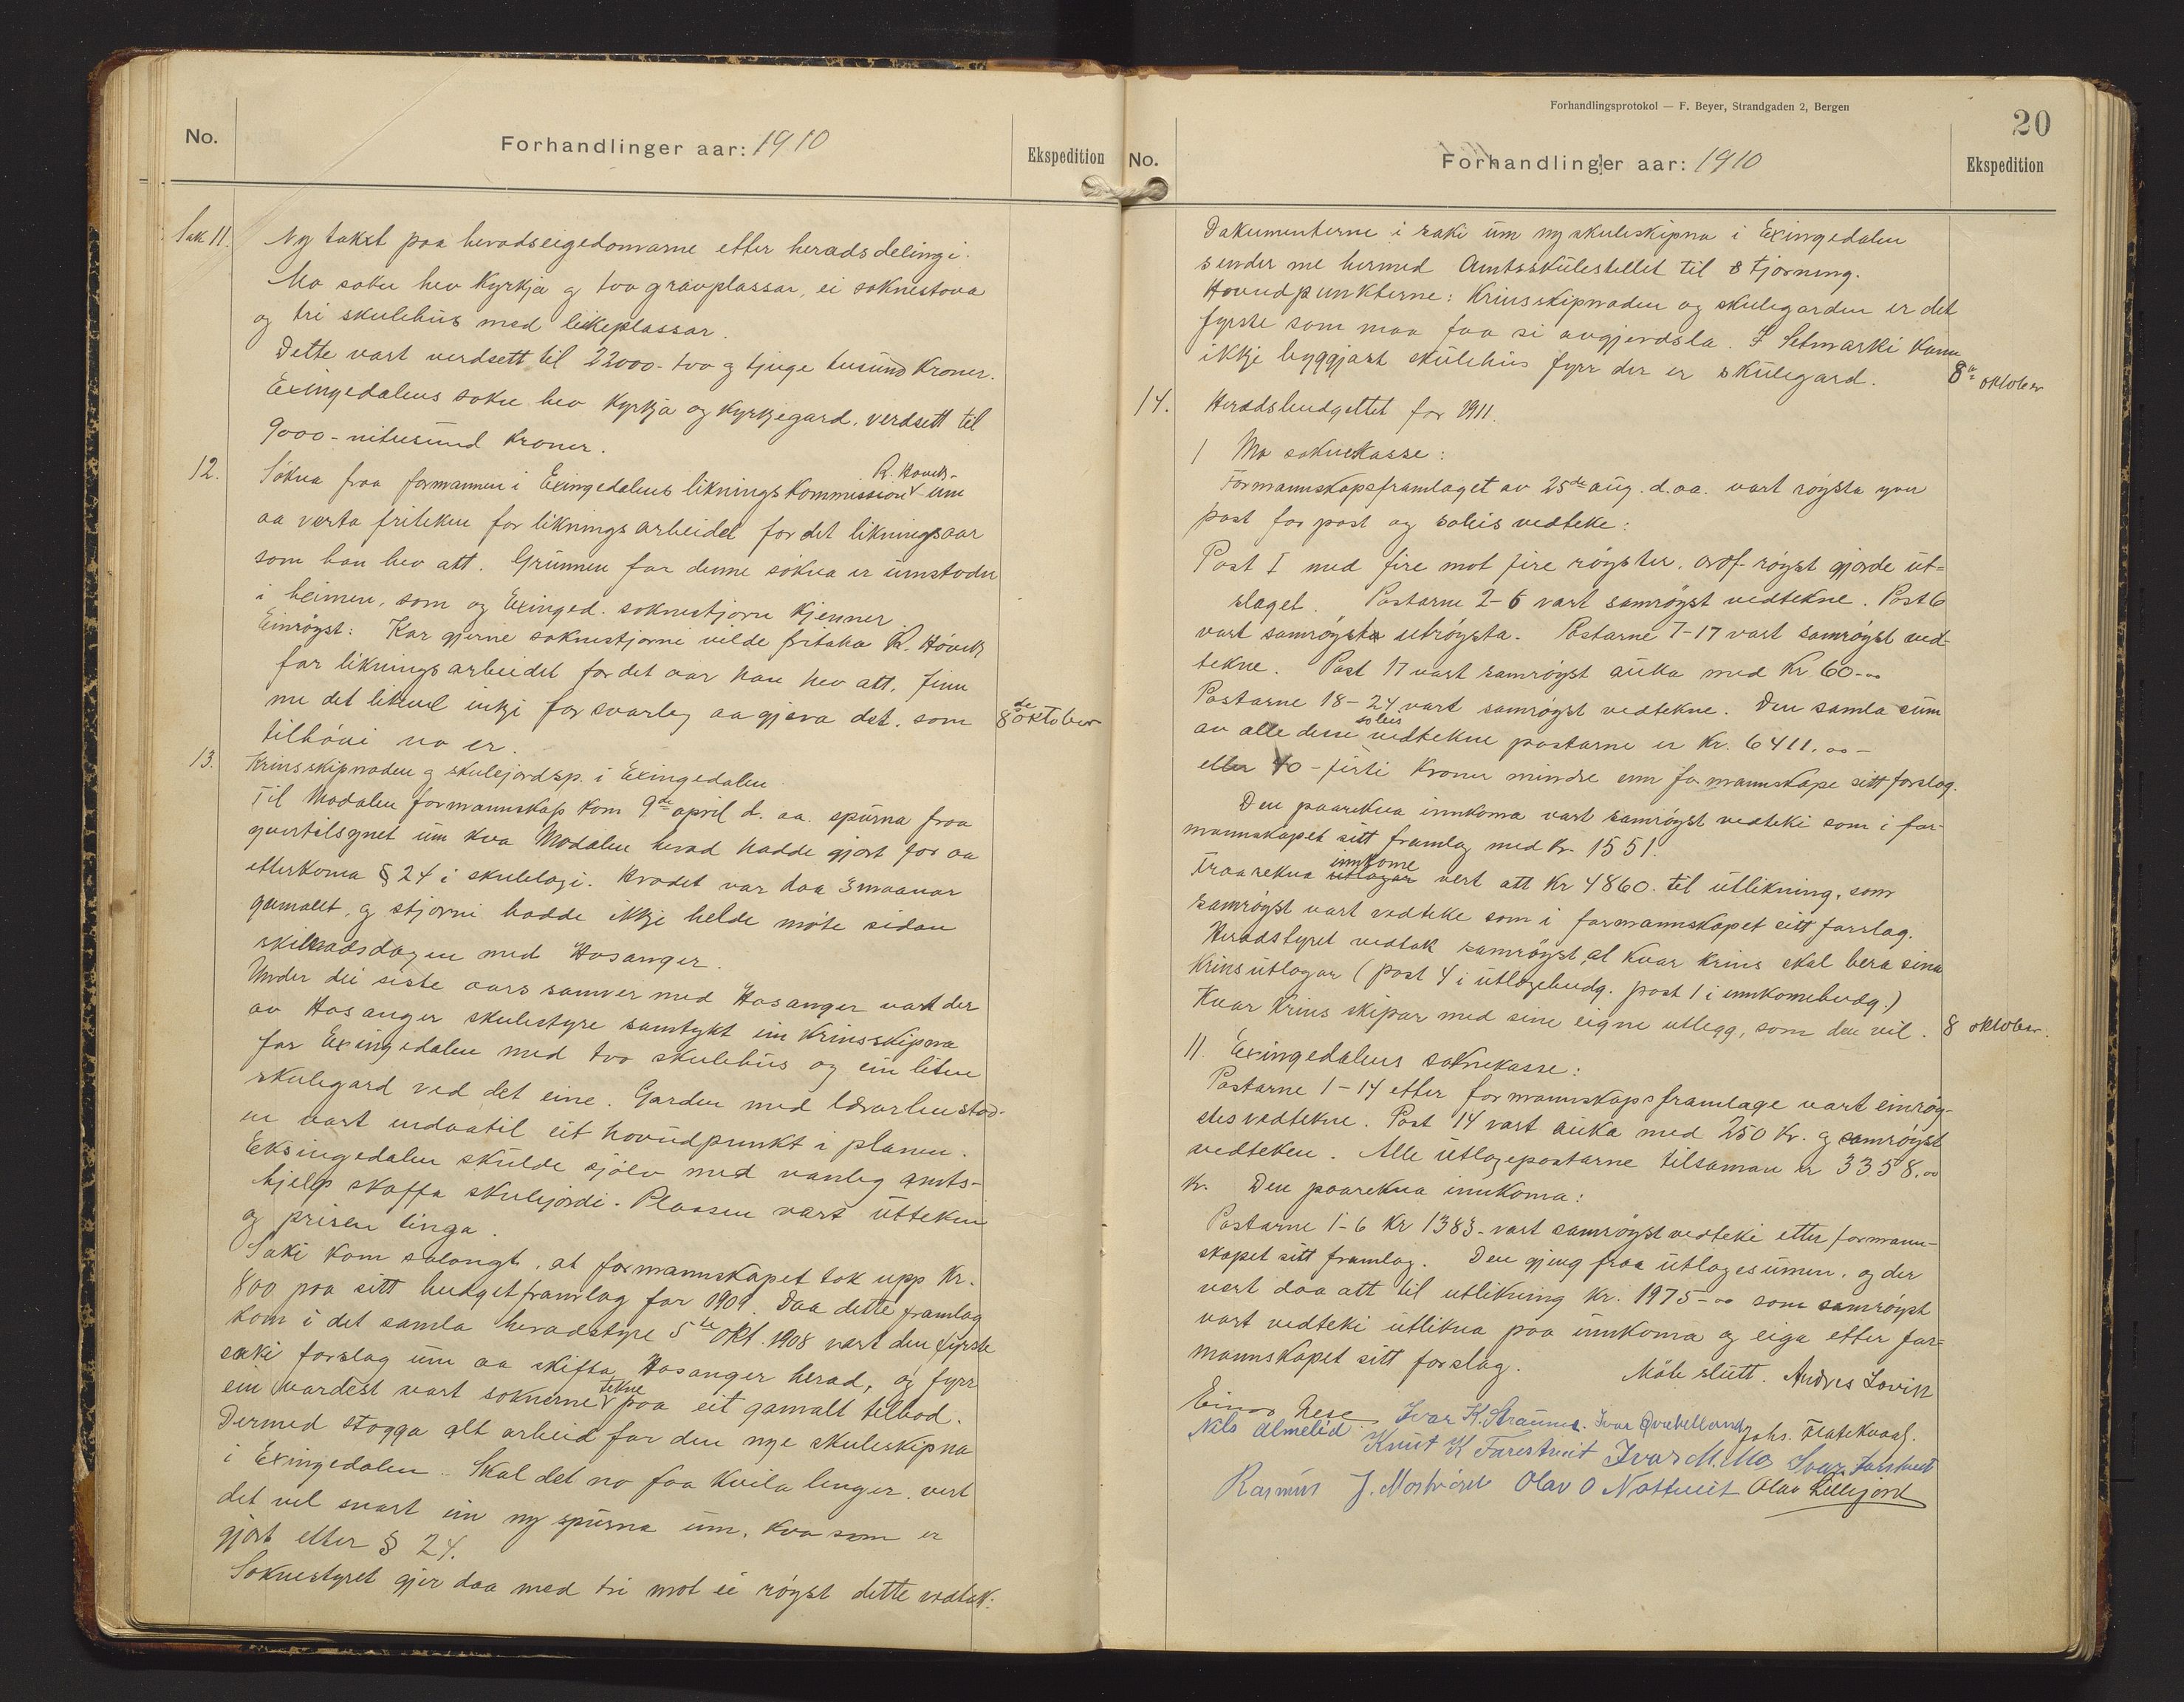 No.
Forhandlinger aar: 1910
Ekspedition
Sak 11.
Ny takst paa heradseigedomarne etter heradsdelingi.
Mo sokn hev Kyrkja og tvo gravplassar, ei soknestova
og tri skulehus med leikeplassar.
Dette vart verdsett til 22000- tvo og tjuge tusund Kroner.
Exingedalens sokn hev Kyrkja og Kyrkjegard, verdsett til
9000-nitusund Kroner.
12.
Søkna fraa formannen i Exingedalens likningskommission R. Høvik- um
aa verta friteken for likningsarbeidet for det likningsaar
som han hev att. Grunnen for denne søkna er umstodn
i heimen, som og Exinged. soknestjorn kjenner
Einrøyst: Kor gjerne soknestjorne vilde fritaka R. Høvik
for likningsarbeidet for det aar han hev att, finn
me det likevel inkje forsvarleg aa gjera det, som
tilhøvi no er.
8de oktober
13.
Krinsskipnaden og skulejordsp. i Exingedalen
Til Modalen formannskap kom 9de april d. aa. spurna fraa
yvertilsynet um kva Modalen herad hadde gjort for aa
etterkoma § 24 i skulelogi. Heradet var daa 3 maanar
gamalt, og stjorni hadde ikkje helde møte sidan
skilnadsdagen med Hosanger.
Under dei siste aars samver med Hosanger vart der
av Hosanger skulestyre samtykt ein Krinsskipna
for Exingedalen med tvo skulehus og ein liten
skulegard ved det eine. Garden med lærarbustad-
en vart endaatil eit hovudpunkt i planen.
Eksingedalen skulde sjølv med vanleg amts-
hjelp skaffa skulejordi. Plassen vart utteken
og prisen tinga.
Saki kom solangt, at formannskapet tok upp Kr.
800 paa sitt budgetframlag for 1909. Daa dette framlag
kom i det samla heradstyre 5te okt. 1908 vart den fyrste
saki forslag um aa skifta Hosanger herad, og fyrr
ein vardest vart soknerne tekne paa eit gamalt tilbod.
Dermed stogga alt arbeid for den nye skuleskipna
i Exingedalen. Skal det no faa kvila lenger, vert
det vel snart ein ny spurna um, kva som er
gjort etter § 24.
Soknestyret gjer daa med tri mot ei røyst dette vedtak:
Forhandlingsprotokol — F. Beyer, Strandgaden 2, Bergen
20
No.
Forhandlinger aar: 1910
Ekspedition
Dokumenterne i saki um ny skuleskipna i Exingedalen
sender me hermed Amtsskulestellet til stjorning.
Hovudpunkterne: Krinsskipnaden og skulegarden er det
fyrste som maa faa si avgjerdsla. I Setmarki kann
ikkje byggjast skulehus fyrr der er skulegard.
8de oktober
14.
Heradsbudgettet for 1911.
1 Mo soknekasse:
Formannskapsframlaget av 25de aug. d.aa. vart røysta yver
post for post og soleis vedteke:
Post I med fire mot fire røyster, ordf. røyst gjorde ut=
slaget. Postarne 2-6 vart samrøyst vedtekne. Post 6
vart samrøysta utrøysta. Postarne 7-17 vart samrøyst ved-
tekne. Post 17 vart samrøyst auka med Kr 60-00
Postarne 18-24 vart samrøyst vedtekne. Den samla sum
av alle desse soleis vedtekne postarne er Kr. 6411.00-
eller 40-fürti Kroner mindre enn formannskape sitt forslag.
Den paarekna innkoma vart samrøyst vedteki som i for-
mannskapet sitt framlag med Kr. 1551.
Fraarekna innkome vert att Kr 4860. til utlikning, som
samrøyst vart vedteke som i formannskapet sitt forslag.
Heradstyret vedtok samrøyst, at kvar krins skal bera sina
krinsutlogar (post 4 i utlogebudg. post 1 i innkomebudg.)
Kvar krins skipar med sine eigne utlegg, som den vil.
8 oktober.
11. Exingedalens soknekasse:
Postarne 1-14 etter formannskapsframlage vart einrøy-
stes vedtekne. Post 14 vart auka med 250 Kr. og samrøyst
vedteken. Alle utlogepostarne tilsaman er 3358.00
Kr. Den paarekna innkoma:
Postarne 1-6 Kr 1383- vart samrøyst vedteki etter formann-
skapet sitt framlag. Den gjeng fraa utlogesumen, og der
vert daa att til utlikning Kr. 1975-00 som samrøyst
vart vedteki utlikna paa innkoma og eiga etter for-
mannskapet sitt forslag.
Møte slutt. Andres Lovik
Einar Nese Ivar K. Straume. Ivar Qvitelland Johs. Flatekvaal.
Nils Almelid Knut K Farestveit Ivar M. Mo Ivar Farestveit
Rasmus J. Mostraum Olav O Nottveit Olav Lillejord